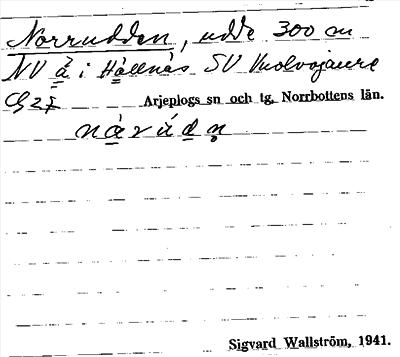 Norrudden, udde 300 m
NV å i Hållnäs SV Vuolvojaure
Arjeplogs sn och tg, Norrbottens län.
Sigvard Wallström, 1941.